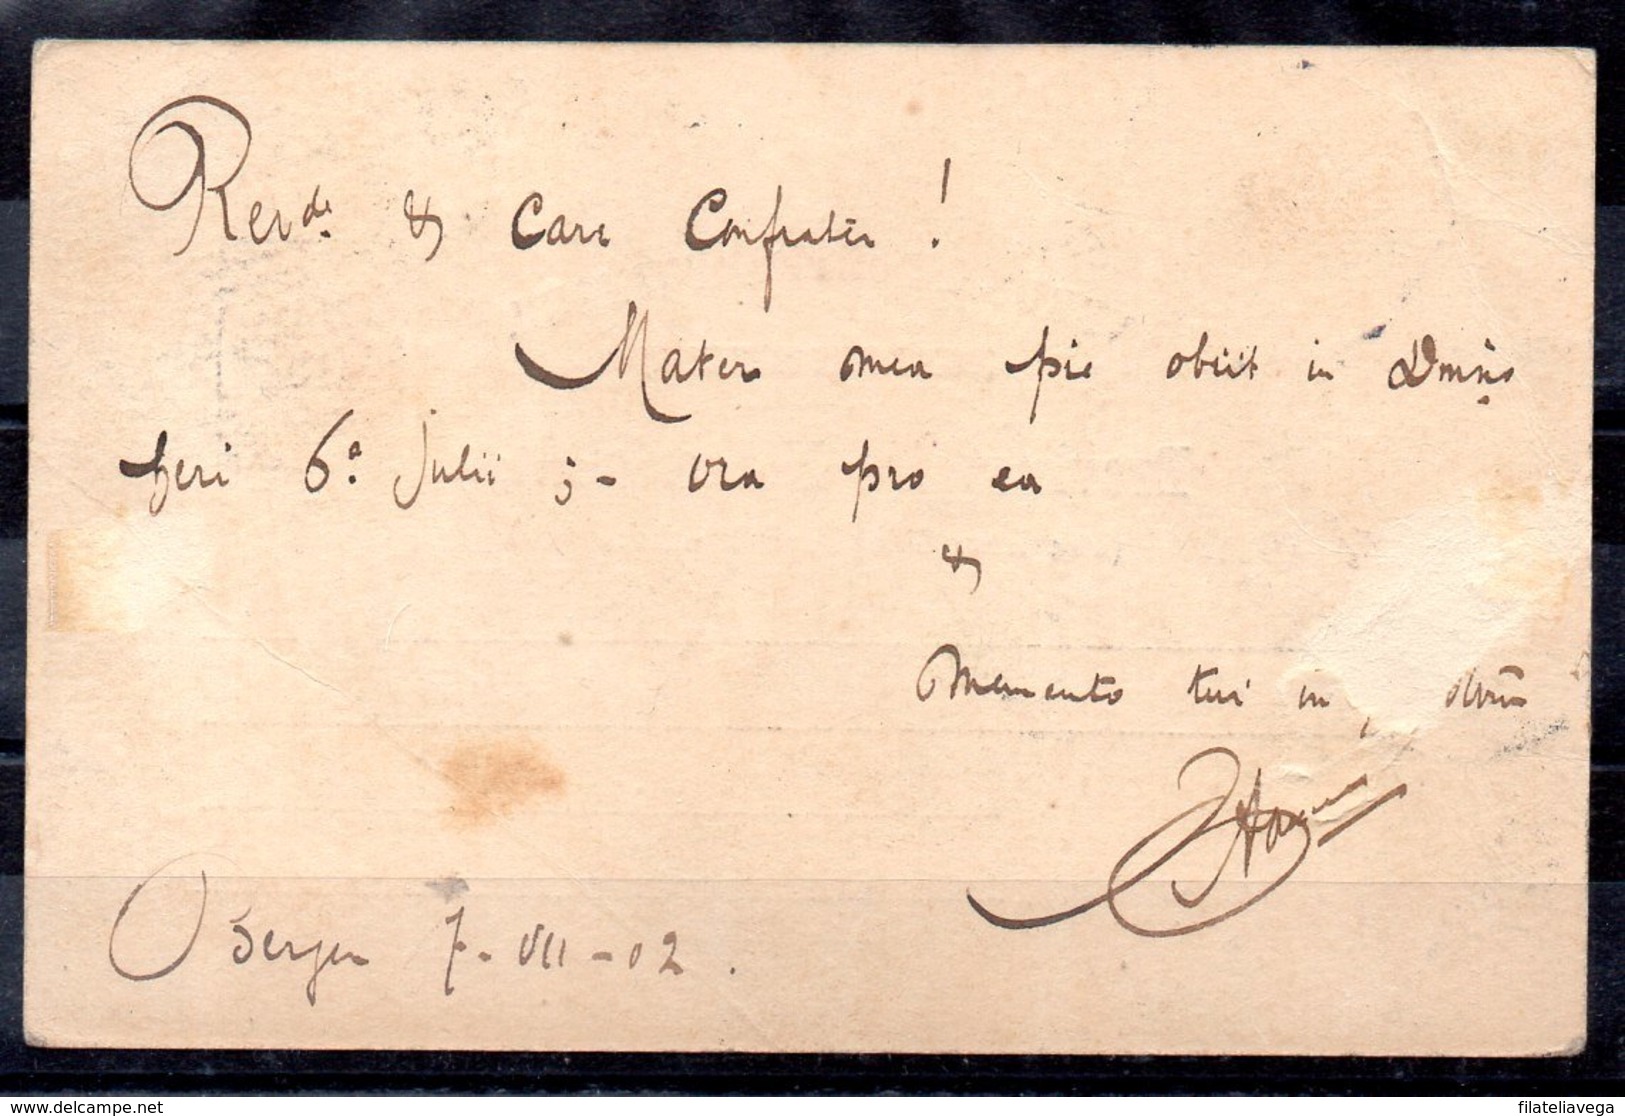 Revde. & Care Confrater!
Mater mea pie obiit in Dmno
heri 6a Julii ;- ora pro ea
&
Memento tui in
Bergen 7-VII-02.
filateliavega